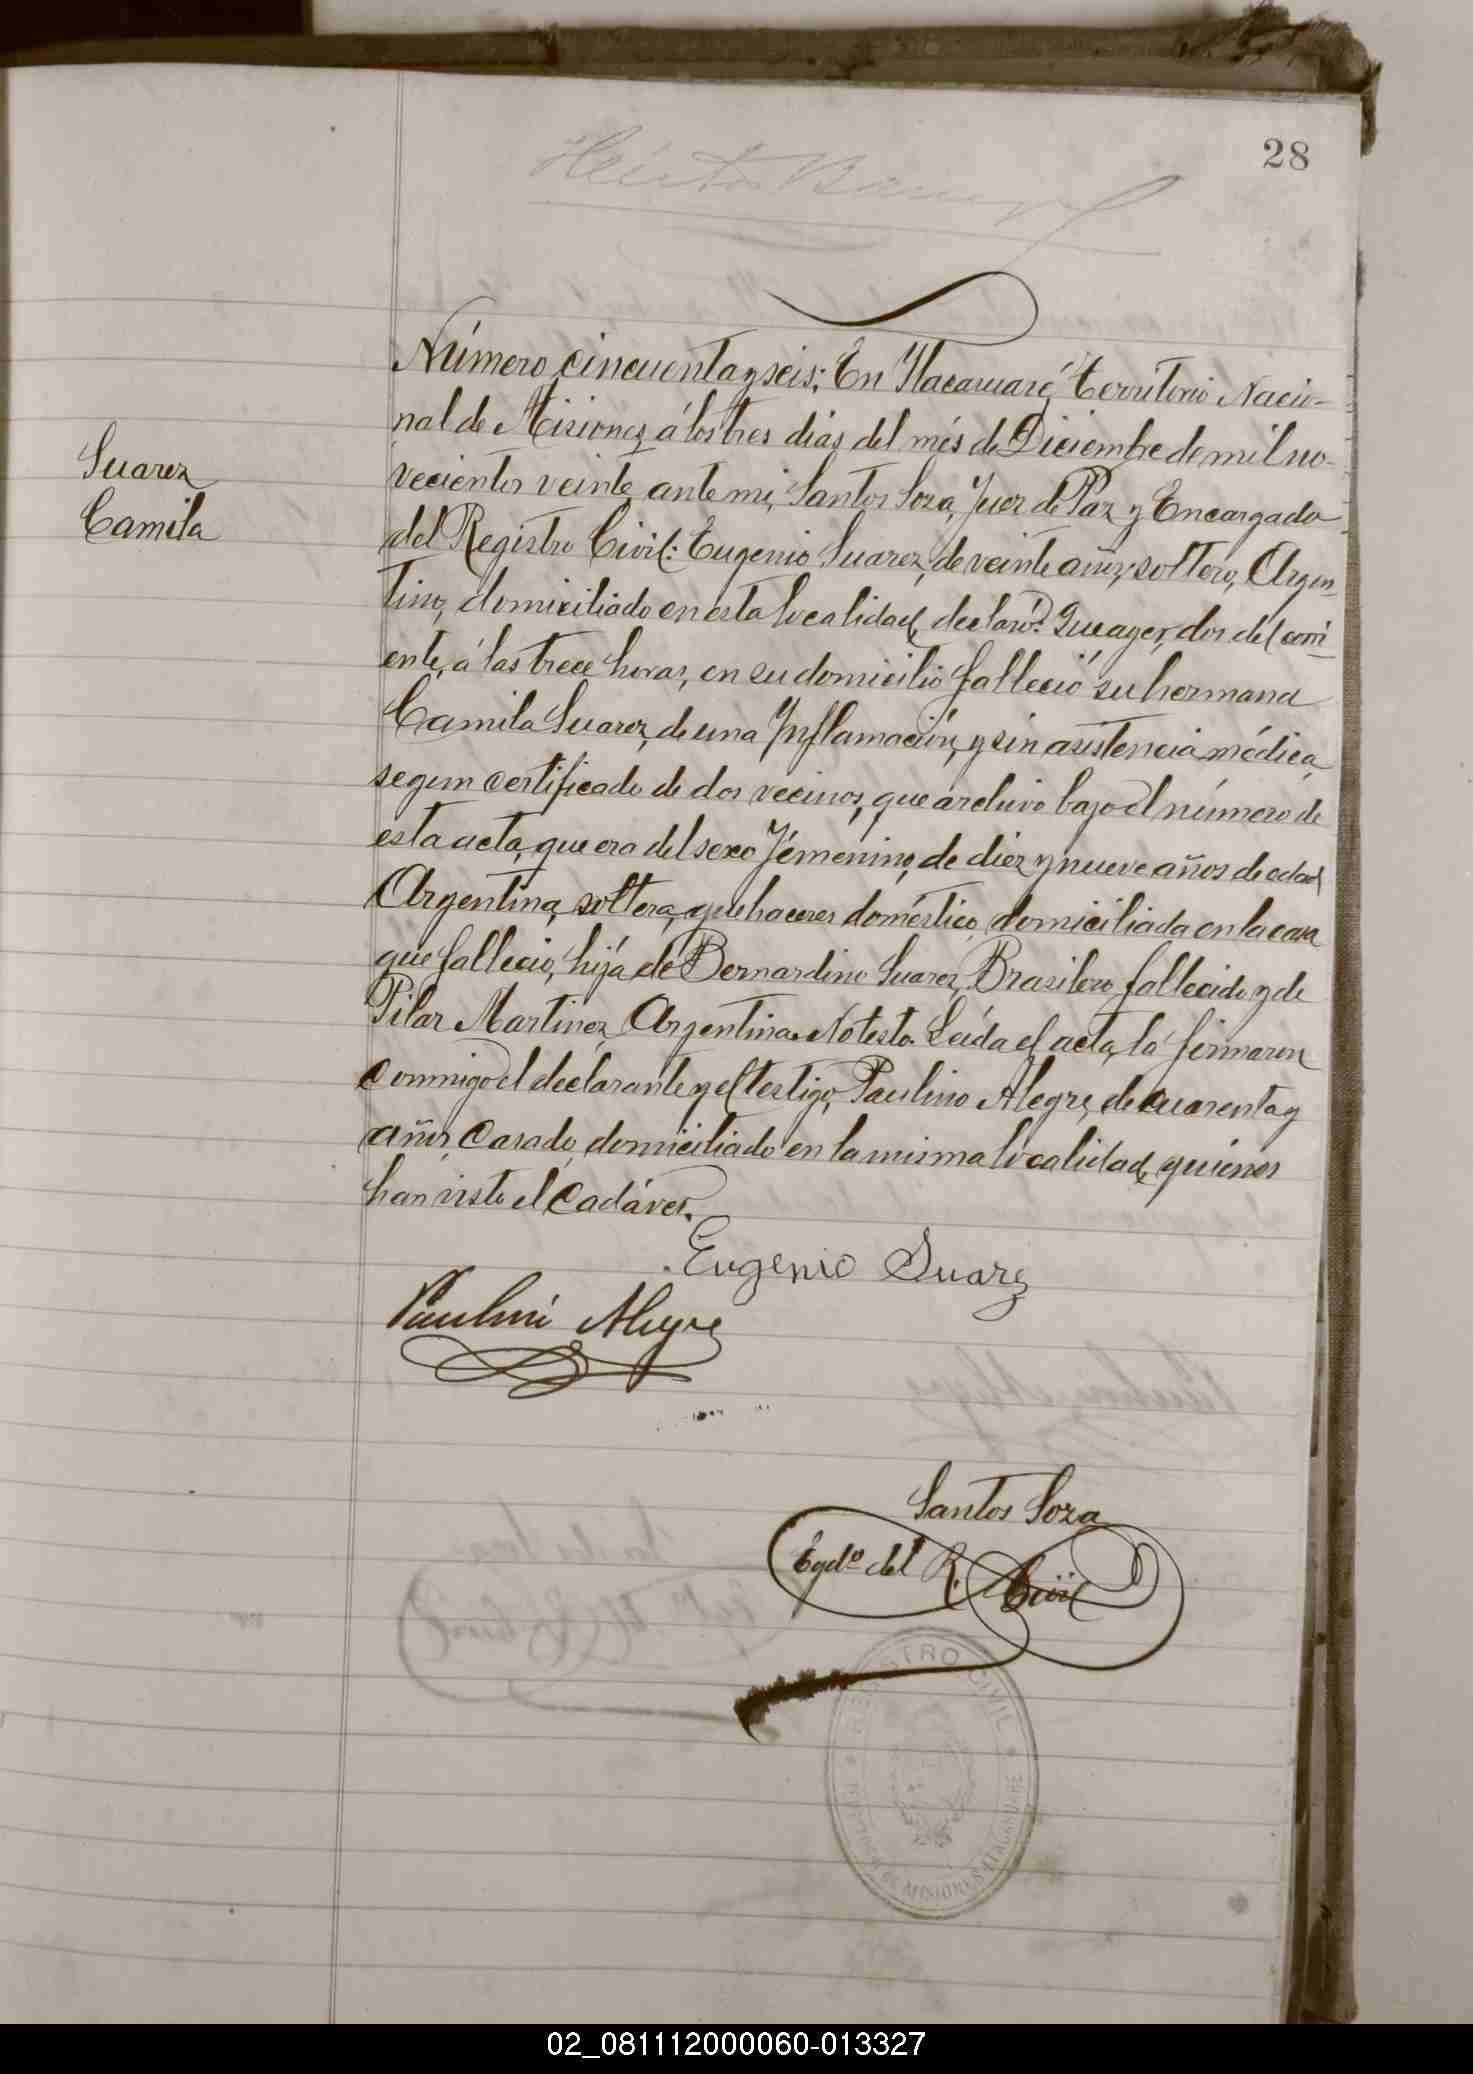 28
Número cincuenta y seis: En Ytacaruaré, territorio Nacio-
nal de Misiones, á los tres dias del més de Diciembre de mil no-
vecientos veinte, ante mi, Santos Soza, Juez de Paz y Encargado
Suarez
Camila
del Registro Civil: Eugenio Suarez, de veinte años, soltero, Argen-
tino, domiciliado en esta localidad, declaró: Que ayer, dos del corri-
ente, á las trece horas, en su domicilio falleció su hermana
Camila Suarez, de una Ynflamación, y sin asistencia médica,
segun certificado de dos vecinos, que archivo bajo el número de
esta acta, que era del sexo Fémenino, de diez y nueve años de edad
Argentina, soltera, quehaceres doméstico, domiciliada en la casa
que fallecio, hija de Bernardino Suarez, Brasilero fallecido y de
Pilar Martinez, Argentina. No testo. Leida el acta, la firmaron
conmigo el declarante y el testigo, Paulino Alegre, de cuarenta y
años, Casado, domiciliado en la misma localidad, quienes
han visto el Cadáver.
Eugenio Suarez
Paulino Alegre
Santos Soza
Egdo del R. Civil
REGISTRO CIVIL
DE MISIONES
02_081112000060-013327